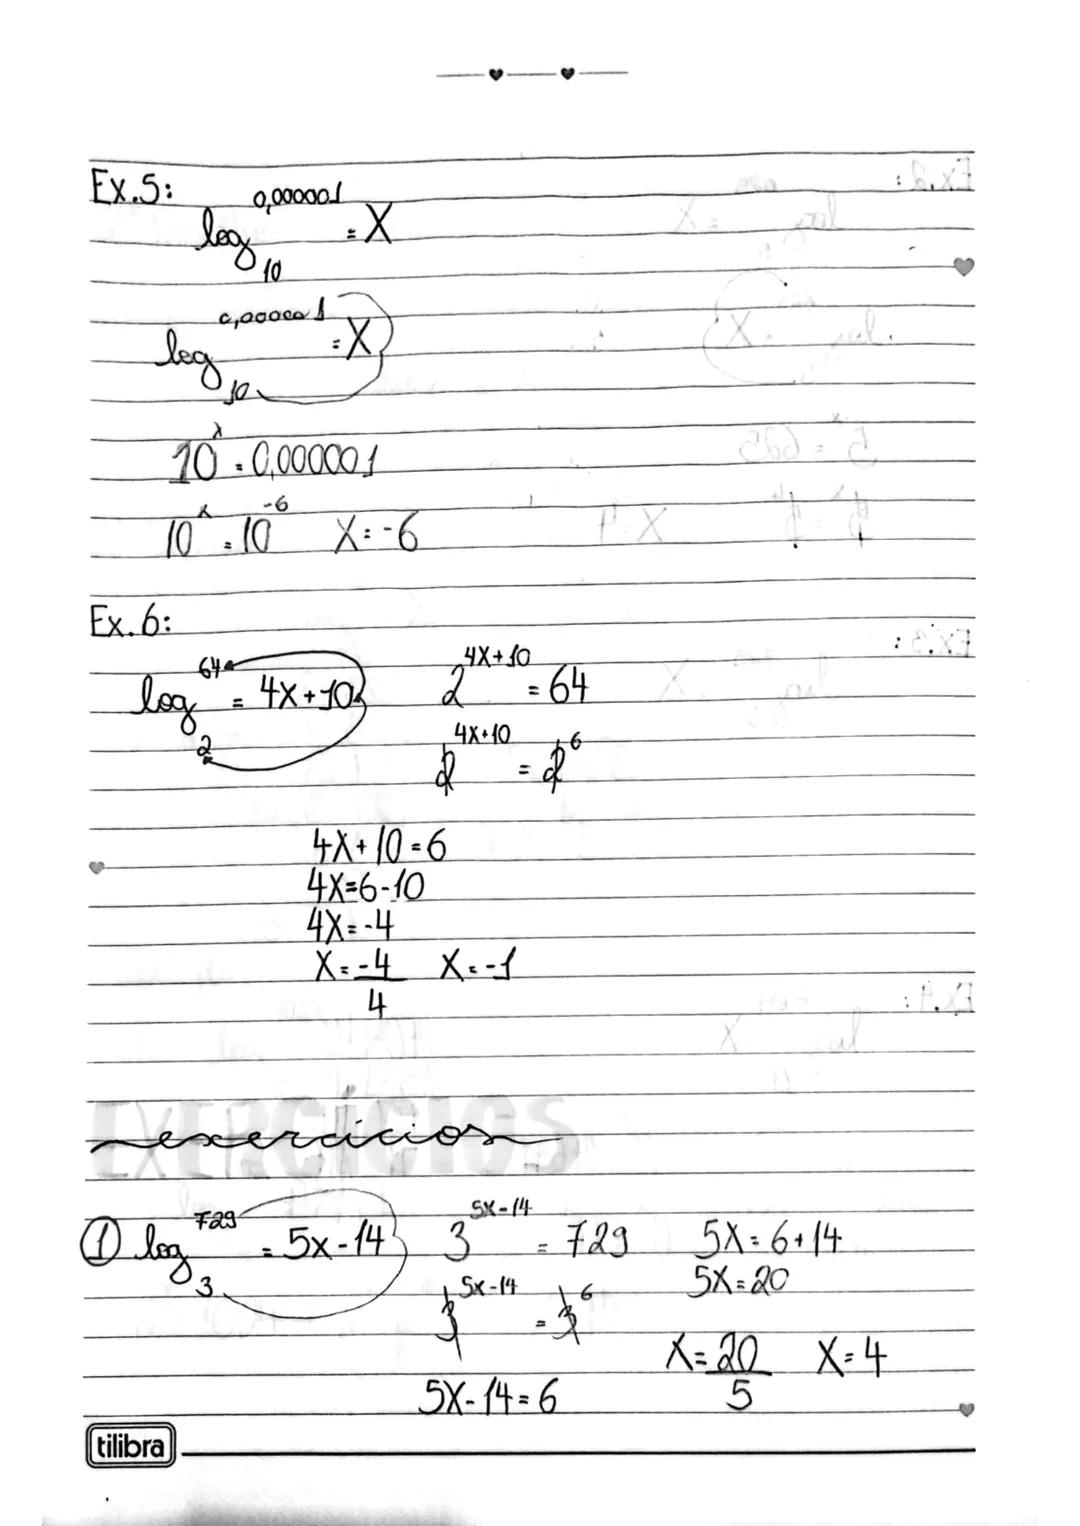 Ex.5:
log₁₀ 0,000001 = X
log₁₀ 0,000001 = X
10ˣ = 0,000001
10ˣ = 10⁻⁶ X = -6
Ex.6:
log₂ 64 = 4X+10 2^(4X+10) = 64
2^(4X+10) = 2⁶
4X+10=6
4X=6-10
4X=-4
X=-4/4 X=-1
EXERCÍCIOS
exercícios
① log₃ 729 = 5x-14 3^(5X-14) = 729 5X=6+14
5X=20
3^(5X-14) = 3⁶
X=20/5 X=4
5X-14=6
tilibra